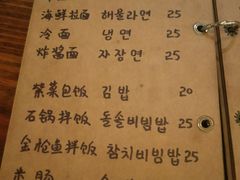 海鲜拉面 해물라면 25
冷面 냉면 25
炸酱面 자장면 25
紫菜包饭 김밥 20
石锅拌饭 돌솥비빔밥 25
金枪鱼拌饭 참치비빔밥 25